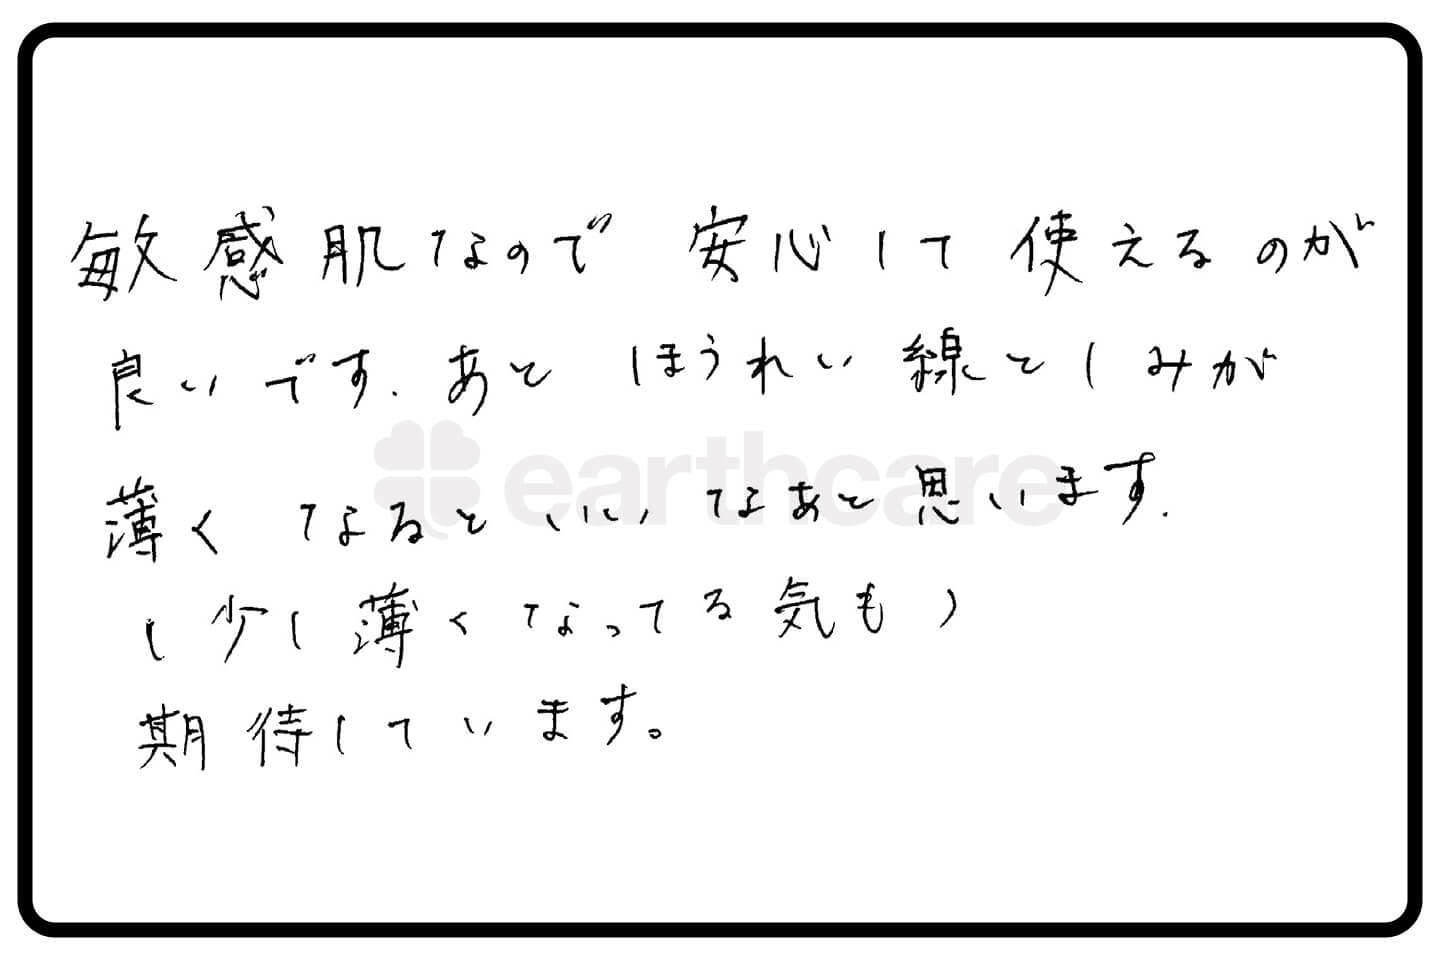 敏感肌なので安心して使えるのが
良いです.あとほうれい線としみが
earthcare
薄くなるといいなあと思います.
(少し薄くなってる気も)
期待しています。